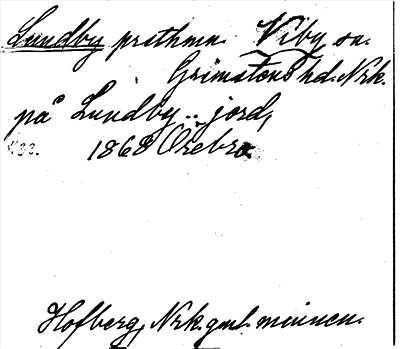 Lundby prothmn. Viby sn.
Grimstens hd. Nrk.
på Lundby.. jord,
1868 Örebro
33.
Hofberg, Nrk. gml. minnen.